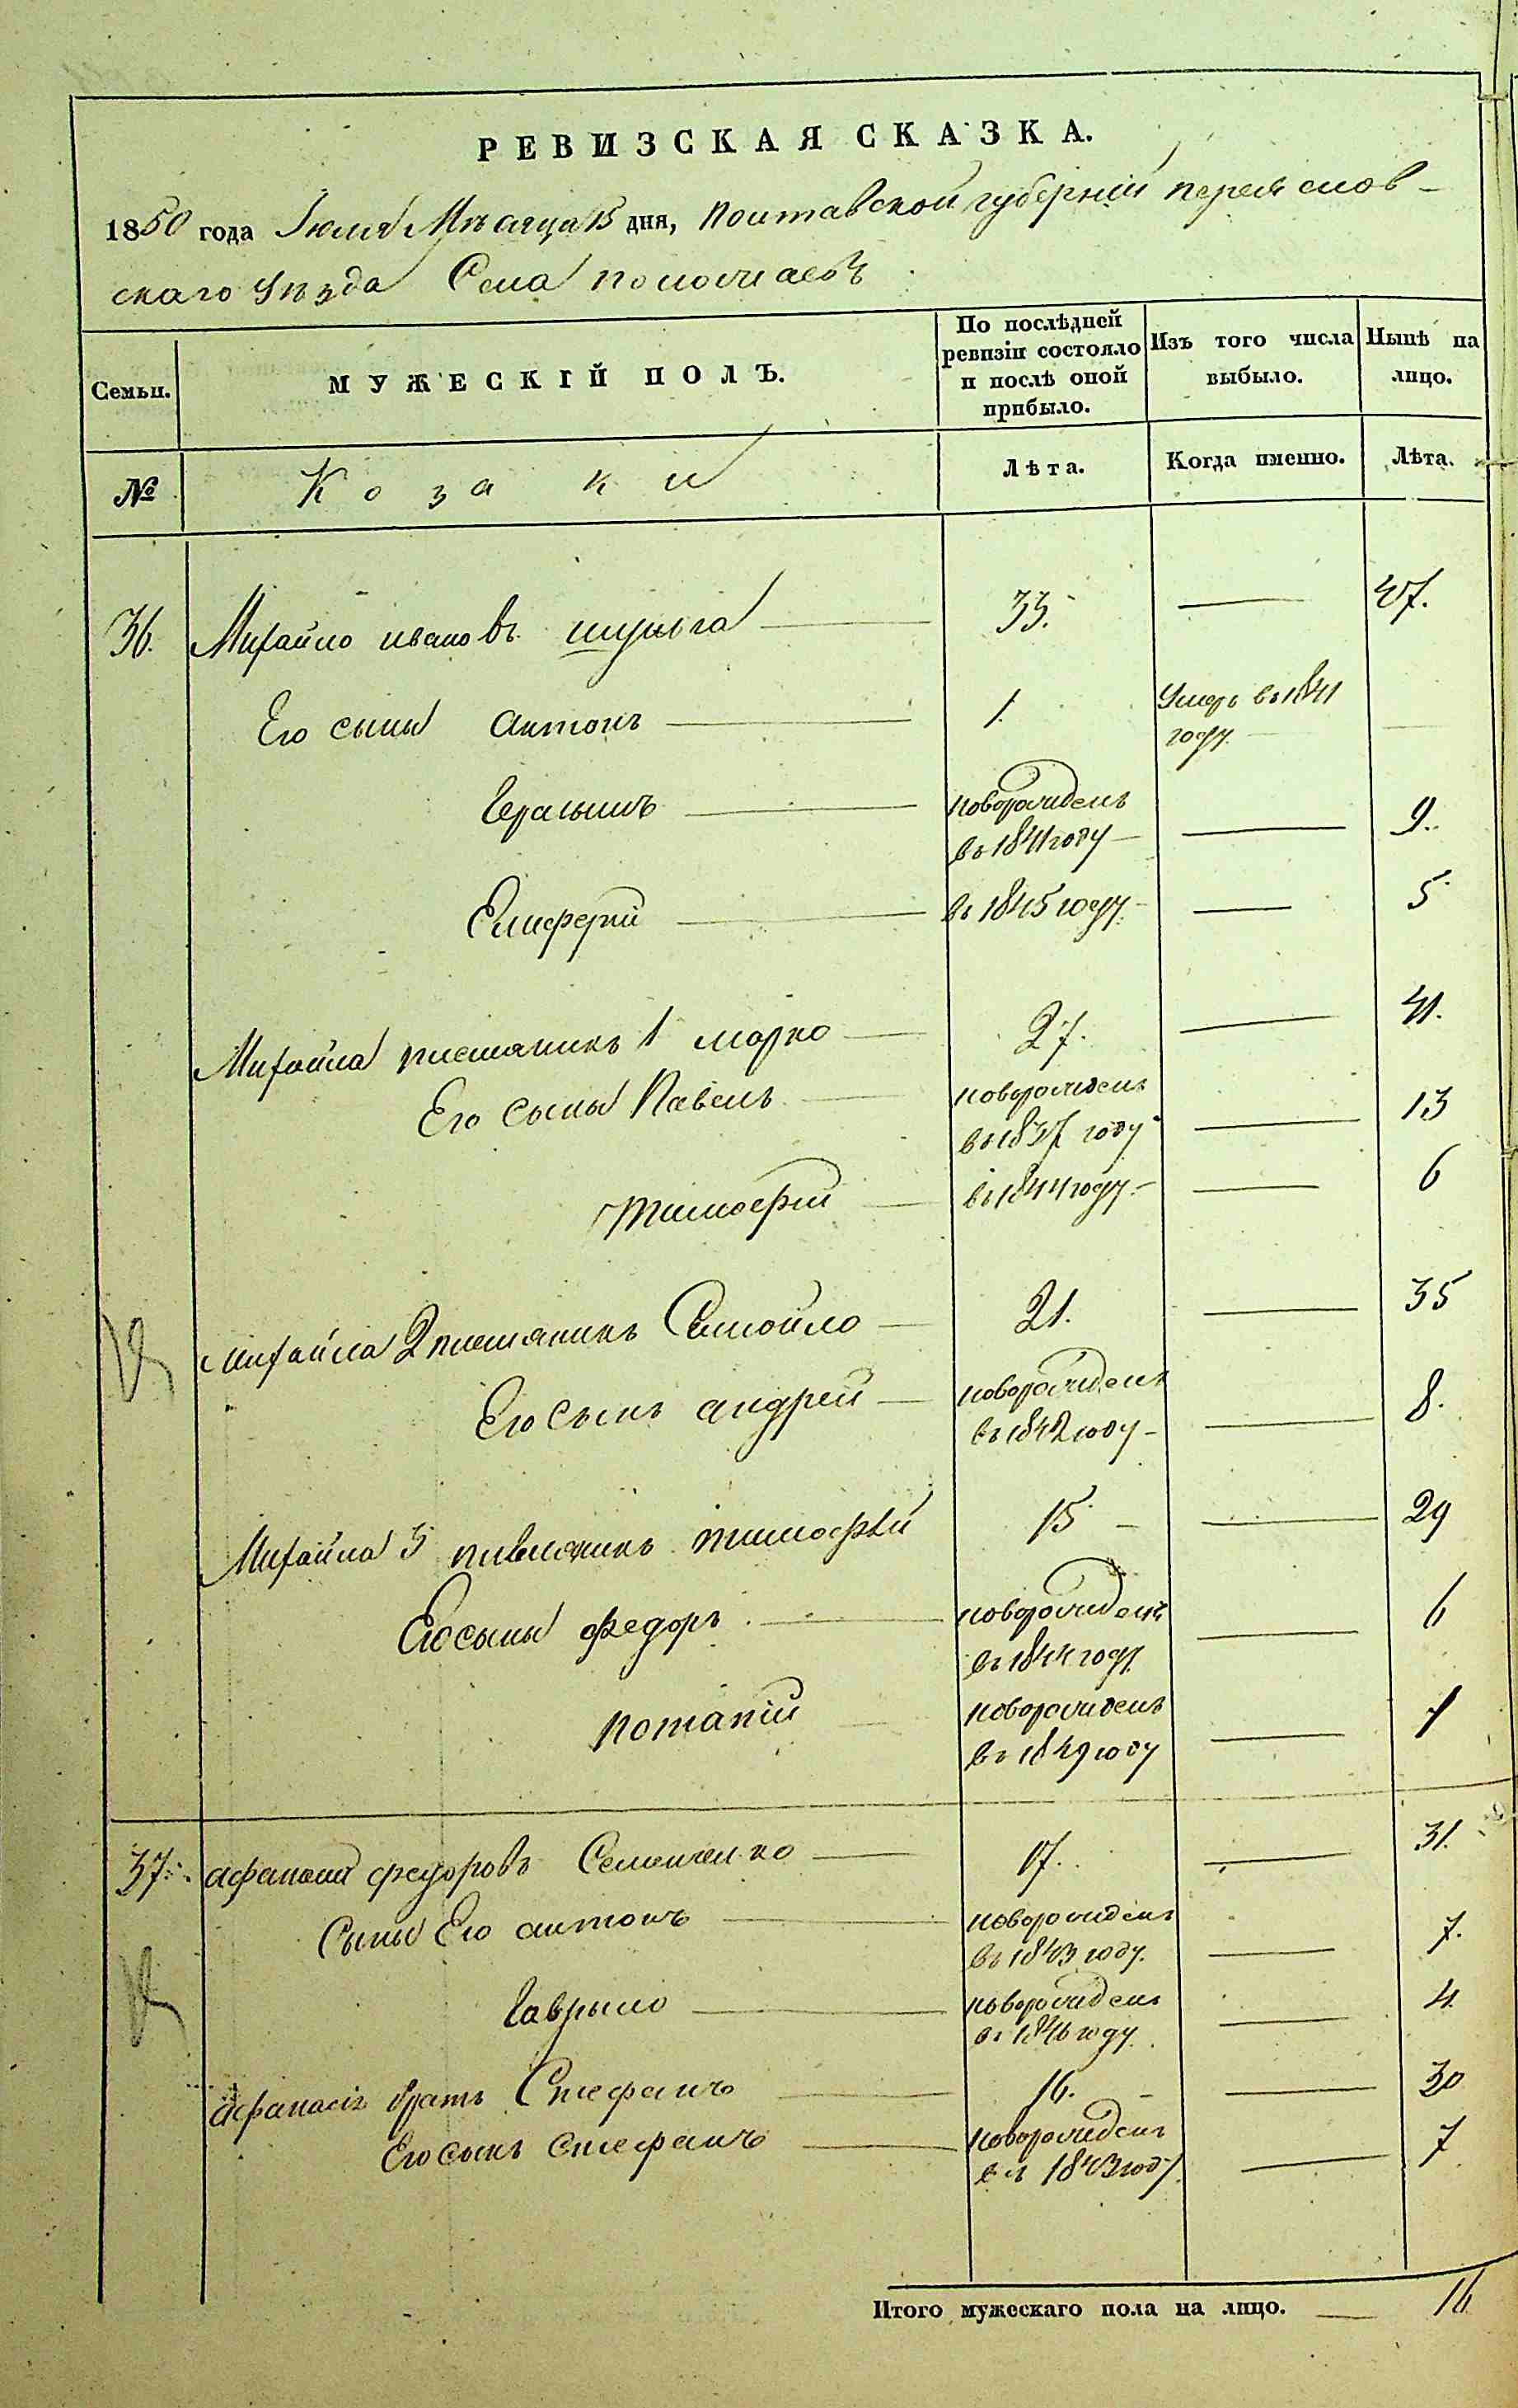 РЕВИЗСКАЯ СКАЗКА.
1850 года Іюля Мѣсяца 15 дня, Полтавской губерніи переяслов-
скаго уѣзда Села пологиаевъ
Семьи.
МУЖЕСКІЙ ПОЛЪ.
По послѣдней ревизіи состояло и послѣ оной прибыло.
Изъ того числа выбыло.
Нынѣ на лицо.
№ Козаки Лѣта. Когда именно. Лѣта.
36. Михайло ивановъ шулыга 33. 47.
Его сыны антонъ 1. Умеръ въ 1841 году
Герасимъ новорожденъ в 1841 году 9.
Елиферій в 1845 году 5
Михайла племяникъ 1 марко 27. 41.
Его сыны Павелъ новорожденъ в 1837 году 13
тимофѣй в 1844 году 6
михайла 2 племяникъ Самойло 21. 35
Его сынъ андрей новорожденъ в 1842 году 8.
Михайла 3 племяникъ тимофѣй 15 29
Его сыны федоръ новорожденъ в 1844 году 6
потапій новорожденъ в 1849 году 1
37. афанасій федоровъ Семененко 17. 31.
Сыны Его антонъ новорожденъ в 1843 году. 7.
Гаврыло новорожденъ в 1846 году 4
афанасія братъ Стефанъ 16. 30
Его сынъ стефанъ новорожденъ въ 1843 году 7
Итого мужескаго пола на лицо. 16